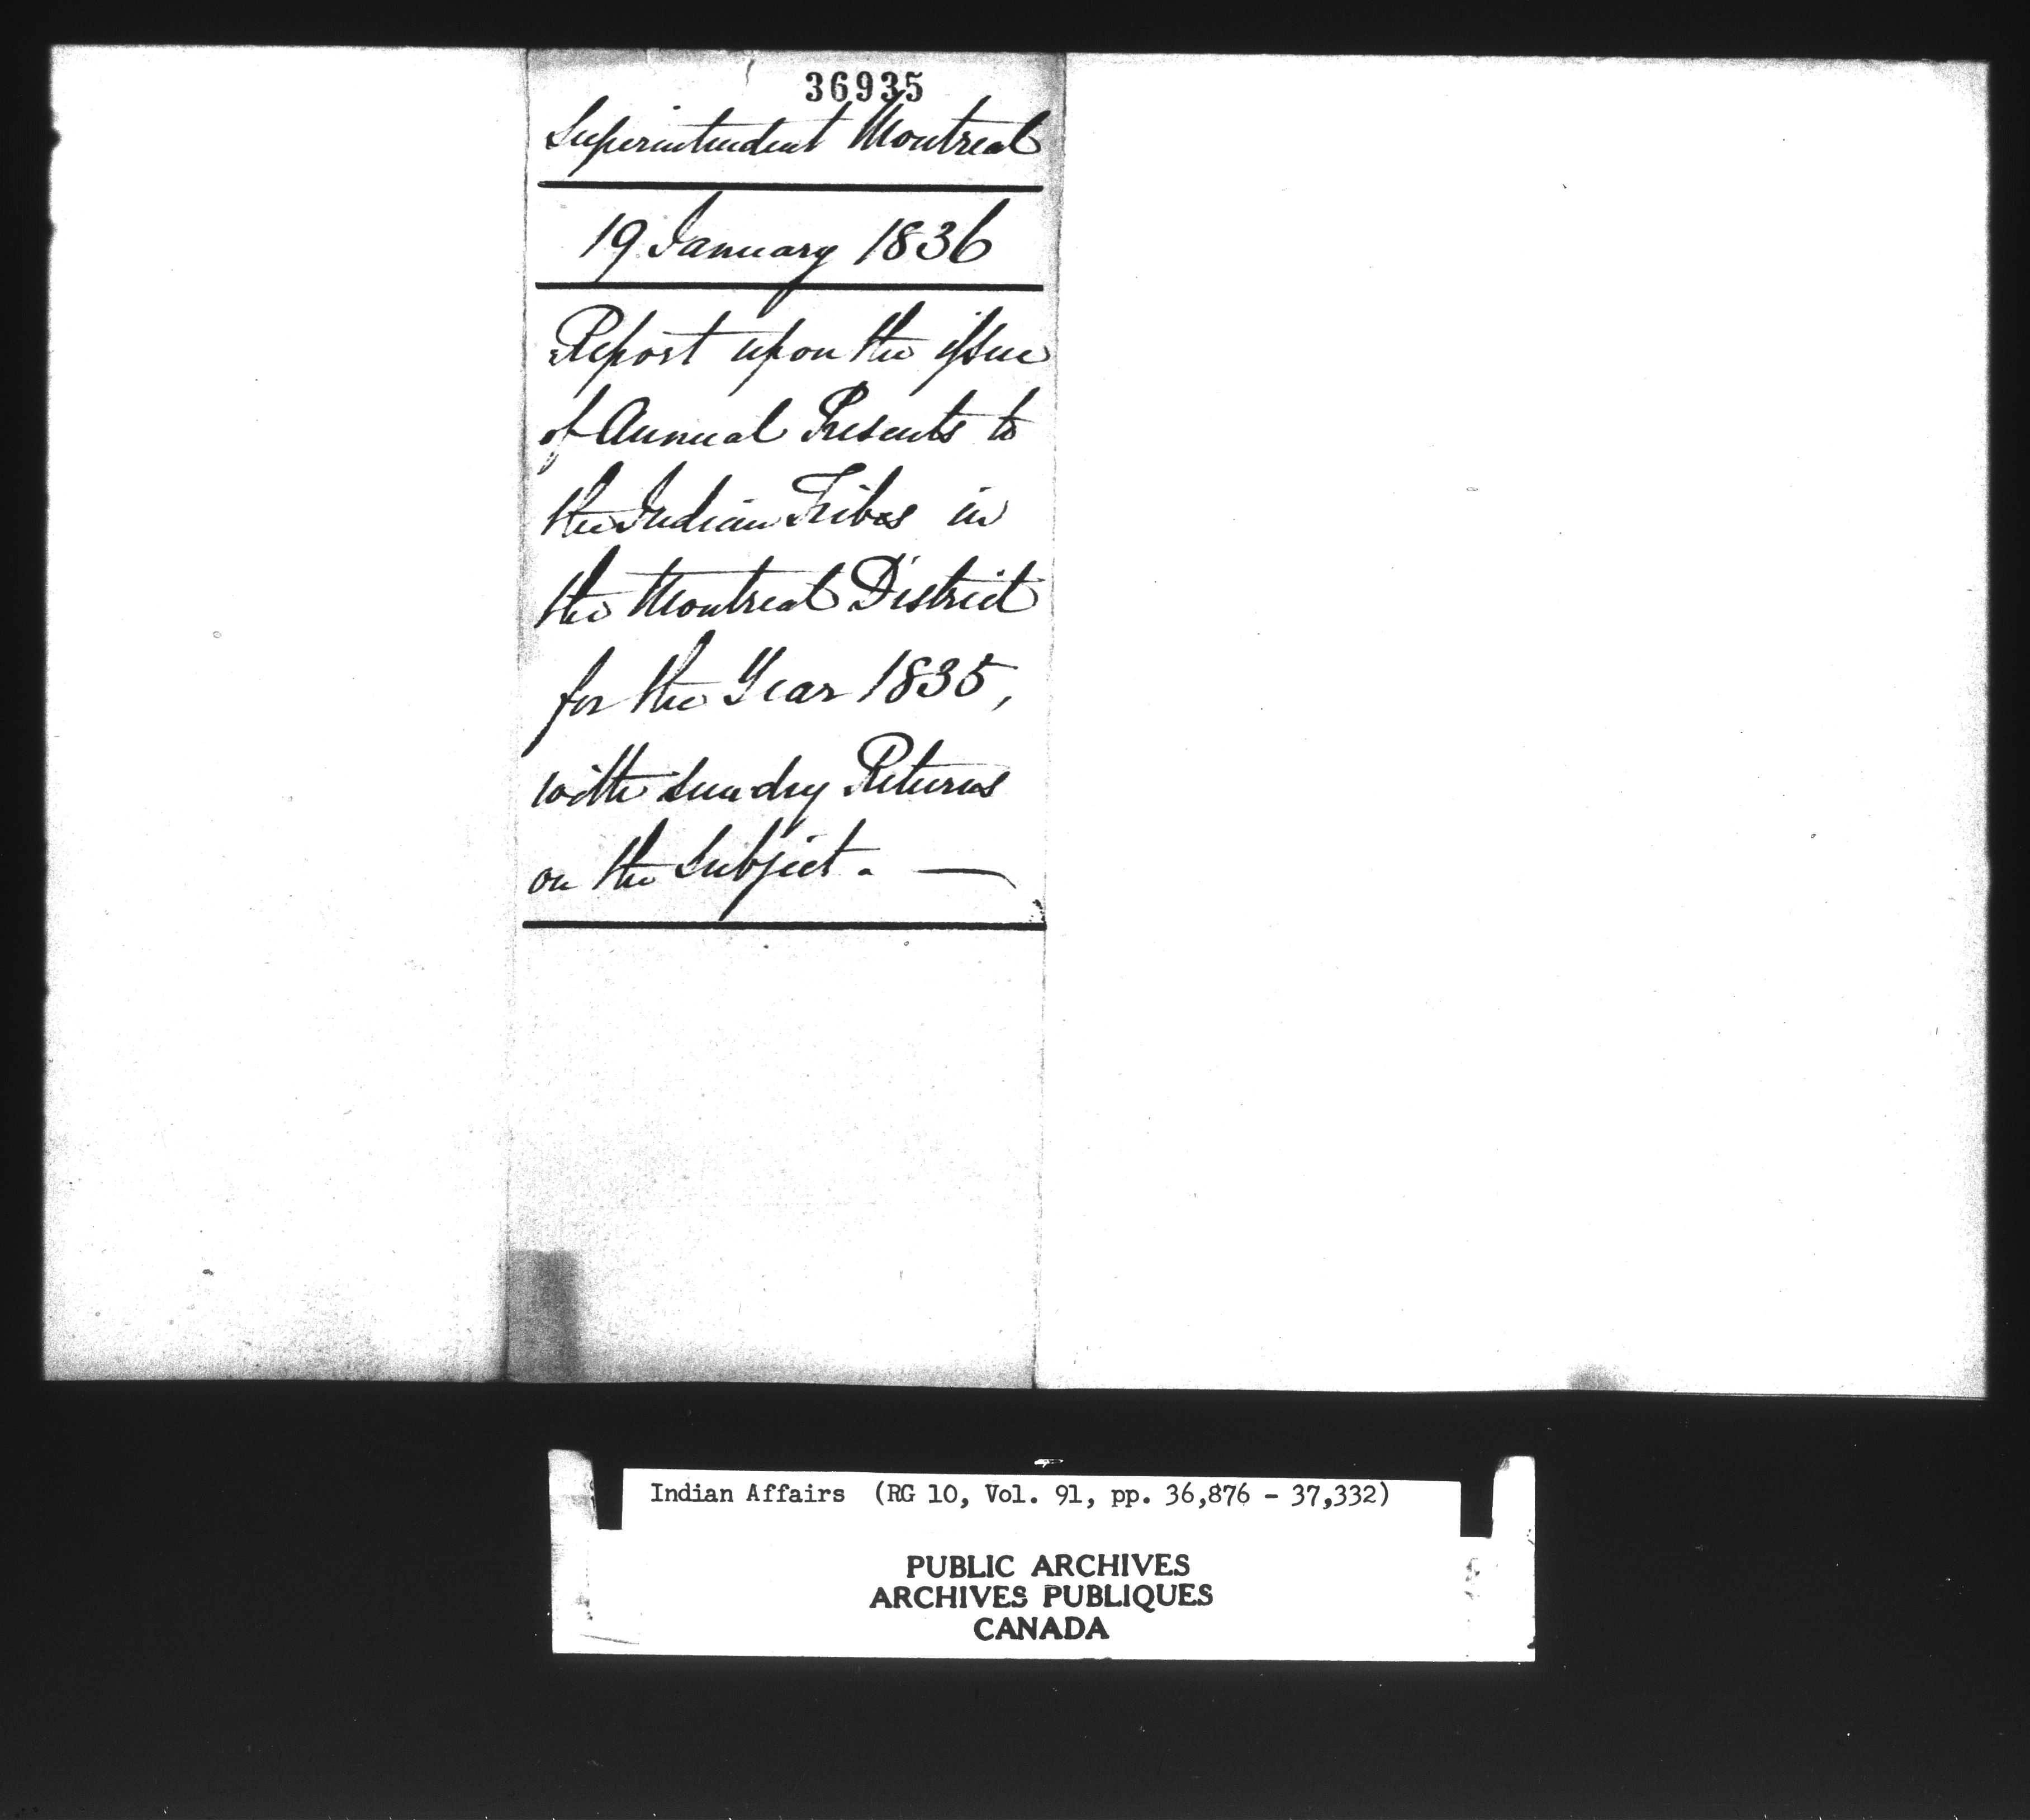 36935
Superintendent Montreal
19 January 1836
Report upon the issue
of Annual Presents to
the Indian Tribes in
the Montreal District
for the Year 1835,
with sundry Returns
on the Subject. —
Indian Affairs (RG 10, Vol. 91, pp. 36,876 - 37,332)
PUBLIC ARCHIVES
ARCHIVES PUBLIQUES
CANADA